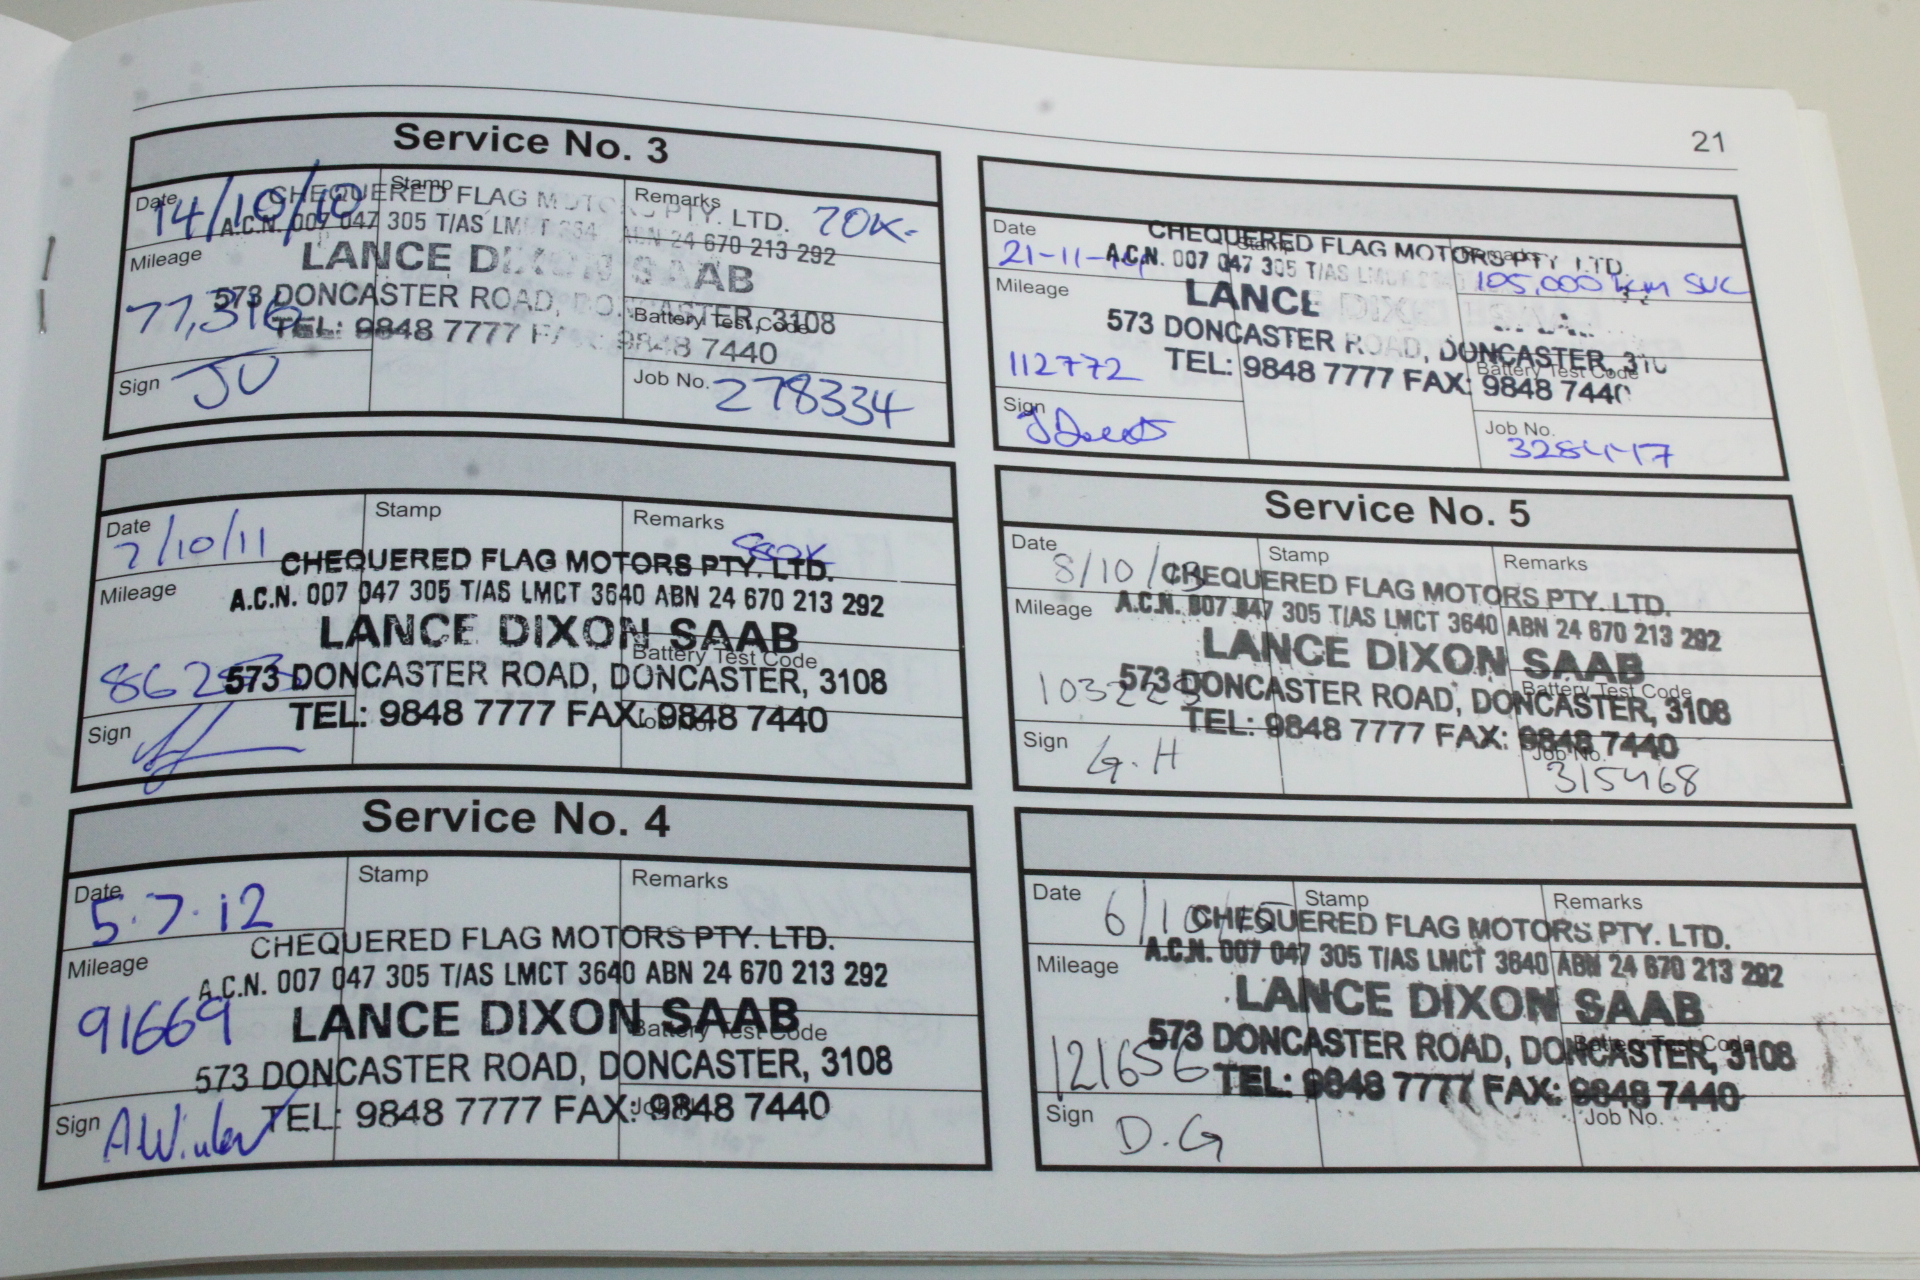 21
Service No. 3
Date 14/10/10
Stamp
Remarks 70K-
CHEQUERED FLAG MOTORS PTY. LTD.
A.C.N. 007 047 305 T/AS LMCT 364 ABN 24 670 213 292
LANCE DIXON SAAB
573 DONCASTER ROAD, DONCASTER, 3108
TEL: 9848 7777 FAX: 9848 7440
Mileage
77,316
Battery Test Code
Sign JU
Job No. 278334
Date 7/10/11
Stamp
Remarks
CHEQUERED FLAG MOTORS PTY. LTD.
A.C.N. 007 047 305 T/AS LMCT 3640 ABN 24 670 213 292
LANCE DIXON SAAB
573 DONCASTER ROAD, DONCASTER, 3108
TEL: 9848 7777 FAX: 9848 7440
Mileage
Battery Test Code
Sign
Job No.
Service No. 4
Date 5.7.12
Stamp
Remarks
CHEQUERED FLAG MOTORS PTY. LTD.
A.C.N. 007 047 305 T/AS LMCT 3640 ABN 24 670 213 292
LANCE DIXON SAAB
573 DONCASTER ROAD, DONCASTER, 3108
TEL: 9848 7777 FAX: 9848 7440
Mileage
91669
Battery Test Code
Sign
Job No.
Date
Stamp
Remarks
105,000 km SVC
CHEQUERED FLAG MOTORS PTY. LTD.
A.C.N. 007 047 305 T/AS LMCT
LANCE DIXON
573 DONCASTER ROAD, DONCASTER, 310
TEL: 9848 7777 FAX: 9848 7440
Mileage
112772
Battery Test Code
Sign
Job No.
328447
Service No. 5
Date 8/10/13
Stamp
Remarks
CHEQUERED FLAG MOTORS PTY. LTD.
A.C.N. 007 047 305 T/AS LMCT 3640 ABN 24 670 213 292
LANCE DIXON SAAB
573 DONCASTER ROAD, DONCASTER, 3108
TEL: 9848 7777 FAX: 9848 7440
Mileage
Battery Test Code
Sign G.H
Job No.
315468
Date 6/10/15
Stamp
Remarks
CHEQUERED FLAG MOTORS PTY. LTD.
A.C.N. 007 047 305 T/AS LMCT 3640 ABN 24 670 213 292
LANCE DIXON SAAB
573 DONCASTER ROAD, DONCASTER, 3108
TEL: 9848 7777 FAX: 9848 7440
Mileage
121656
Battery Test Code
Sign D.G
Job No.